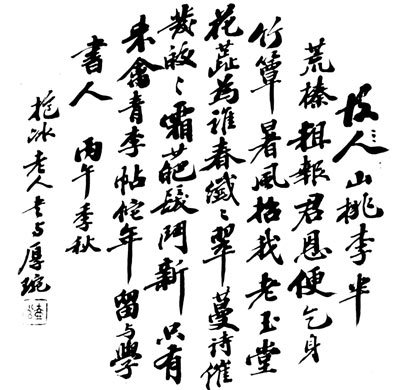 故人山桃李半
荒榛粗報君恩便乞身
竹簟暑風招我老玉堂
花蕋為誰春纖〻翠蔓詩催
發皎〻霜葩髮鬥新只有
來禽青李帖佗年留与學
書人 丙午季秋
抱冰老人書与厚琬